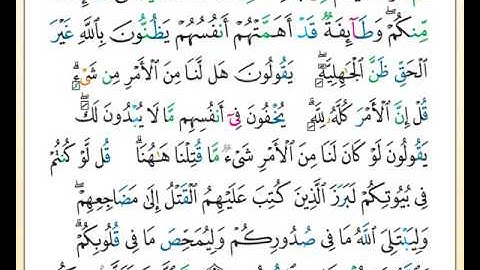 مِّنكُمْ ۖ وَطَآئِفَةٌ قَدْ أَهَمَّتْهُمْ أَنفُسُهُمْ يَظُنُّونَ بِٱللَّهِ غَيْرَ
ٱلْحَقِّ ظَنَّ ٱلْجَٰهِلِيَّةِ ۖ يَقُولُونَ هَل لَّنَا مِنَ ٱلْأَمْرِ مِن شَىْءٍ ۗ
قُلْ إِنَّ ٱلْأَمْرَ كُلَّهُۥ لِلَّهِ ۗ يُخْفُونَ فِىٓ أَنفُسِهِم مَّا لَا يُبْدُونَ لَكَ ۖ
يَقُولُونَ لَوْ كَانَ لَنَا مِنَ ٱلْأَمْرِ شَىْءٌ مَّا قُتِلْنَا هَٰهُنَا ۗ قُل لَّوْ كُنتُمْ
فِى بُيُوتِكُمْ لَبَرَزَ ٱلَّذِينَ كُتِبَ عَلَيْهِمُ ٱلْقَتْلُ إِلَىٰ مَضَاجِعِهِمْ ۖ
وَلِيَبْتَلِىَ ٱللَّهُ مَا فِى صُدُورِكُمْ وَلِيُمَحِّصَ مَا فِى قُلُوبِكُمْ ۗ